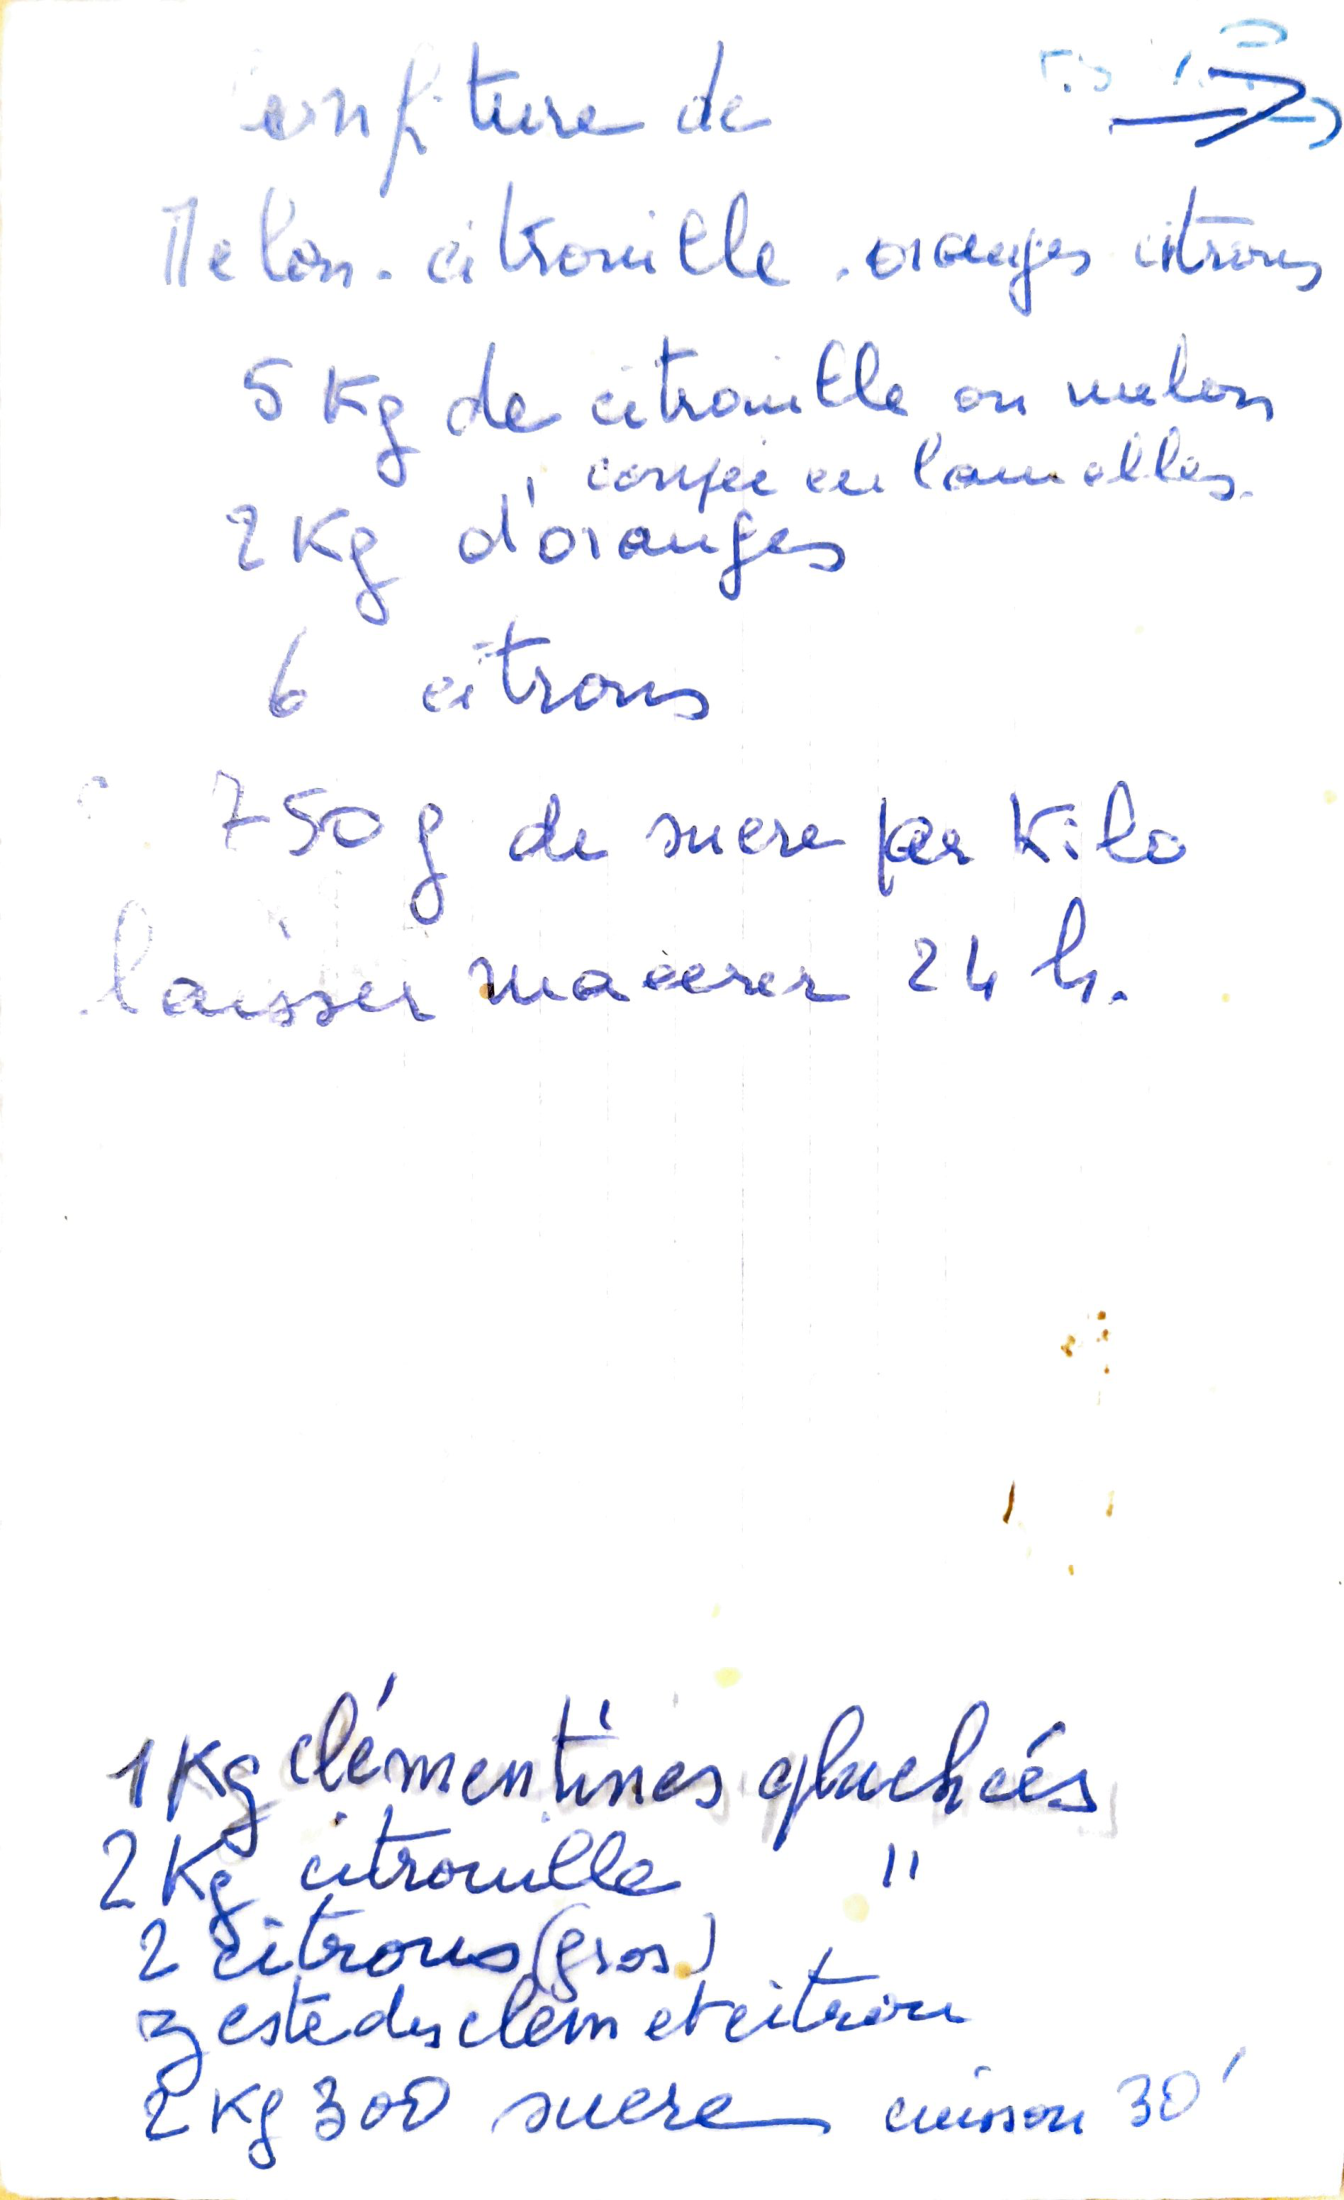 Confiture de
Melon - citrouille . oranges citrons
5 Kg de citrouille ou melon
coupée en lamelles.
2 Kg d'oranges
6 citrons
750 g de sucre par Kilo
laisser macerer 24 h.
1 Kg clémentines épluchées
2 Kg citrouille "
2 citrons (gros)
zeste des clem et citron
2 Kg 300 sucre cuisson 30'